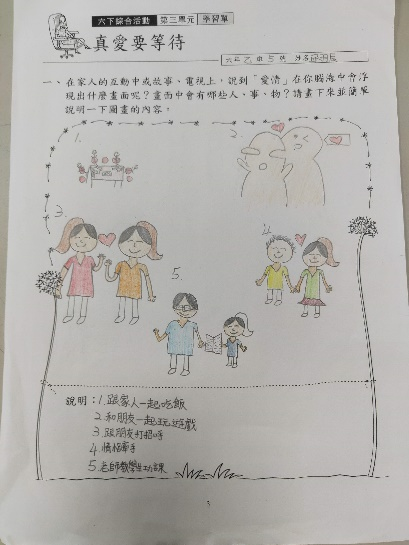 六下綜合活動 第三單元 學習單
真愛要等待
六年乙班5號 姓名
一、在家人的互動中或故事、電視上，說到「愛情」在你腦海中會浮
現出什麼畫面呢？畫面中會有哪些人、事、物？請畫下來並簡單
說明一下圖畫的內容。
1.
2.
3.
4.
5.
說明：1.跟家人一起吃飯
2.和朋友一起玩遊戲
3.跟朋友打招呼
4.情侶牽手
5.老師教學生功課